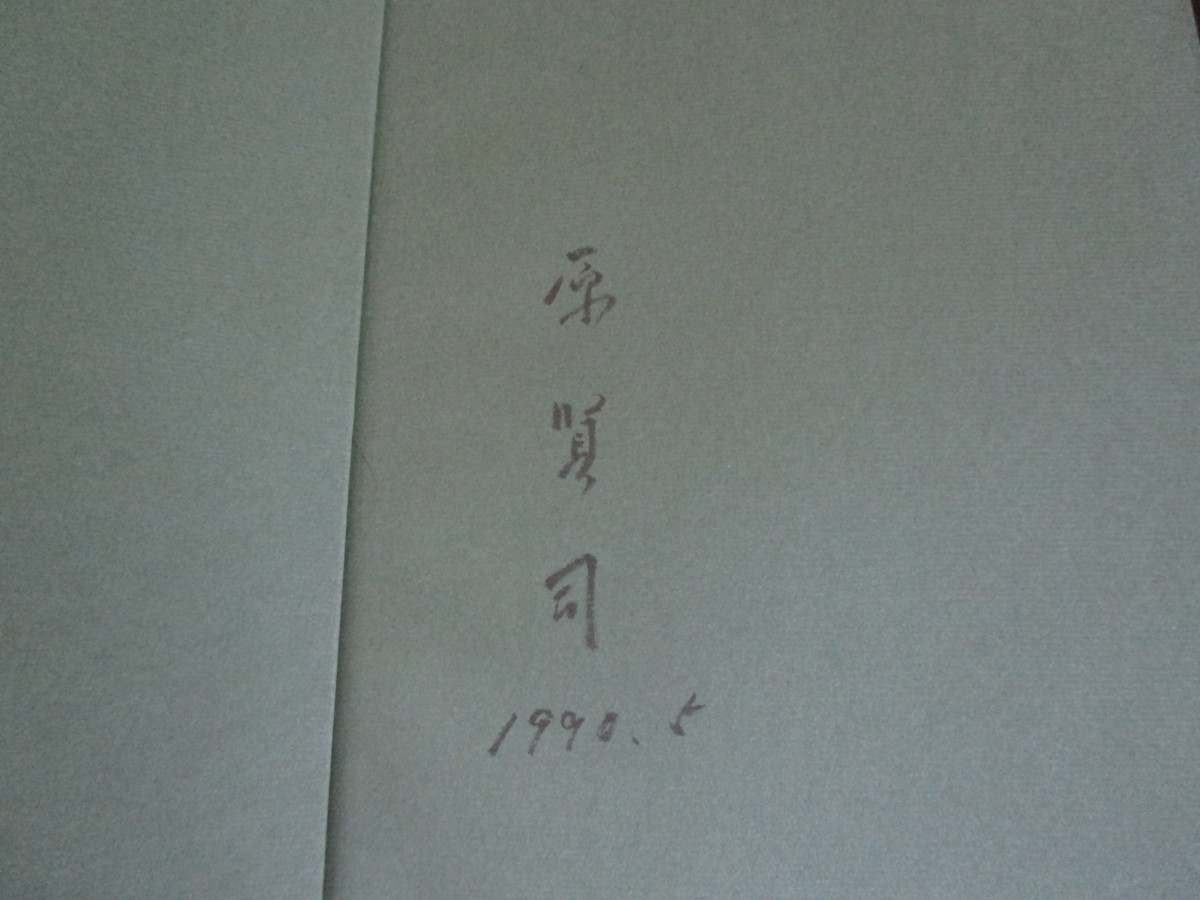 原賢司
1990.5